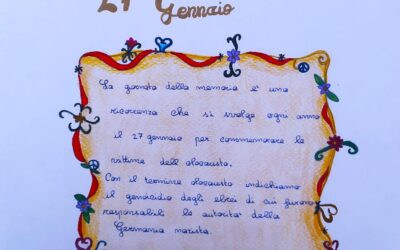 27 Gennaio
La giornata della memoria è una
ricorrenza che si svolge ogni anno
il 27 gennaio per commemorare le
vittime dell'olocausto.
Con il termine olocausto indichiamo
il genocidio degli ebrei di cui furono
responsabili le autorità della
Germania nazista.